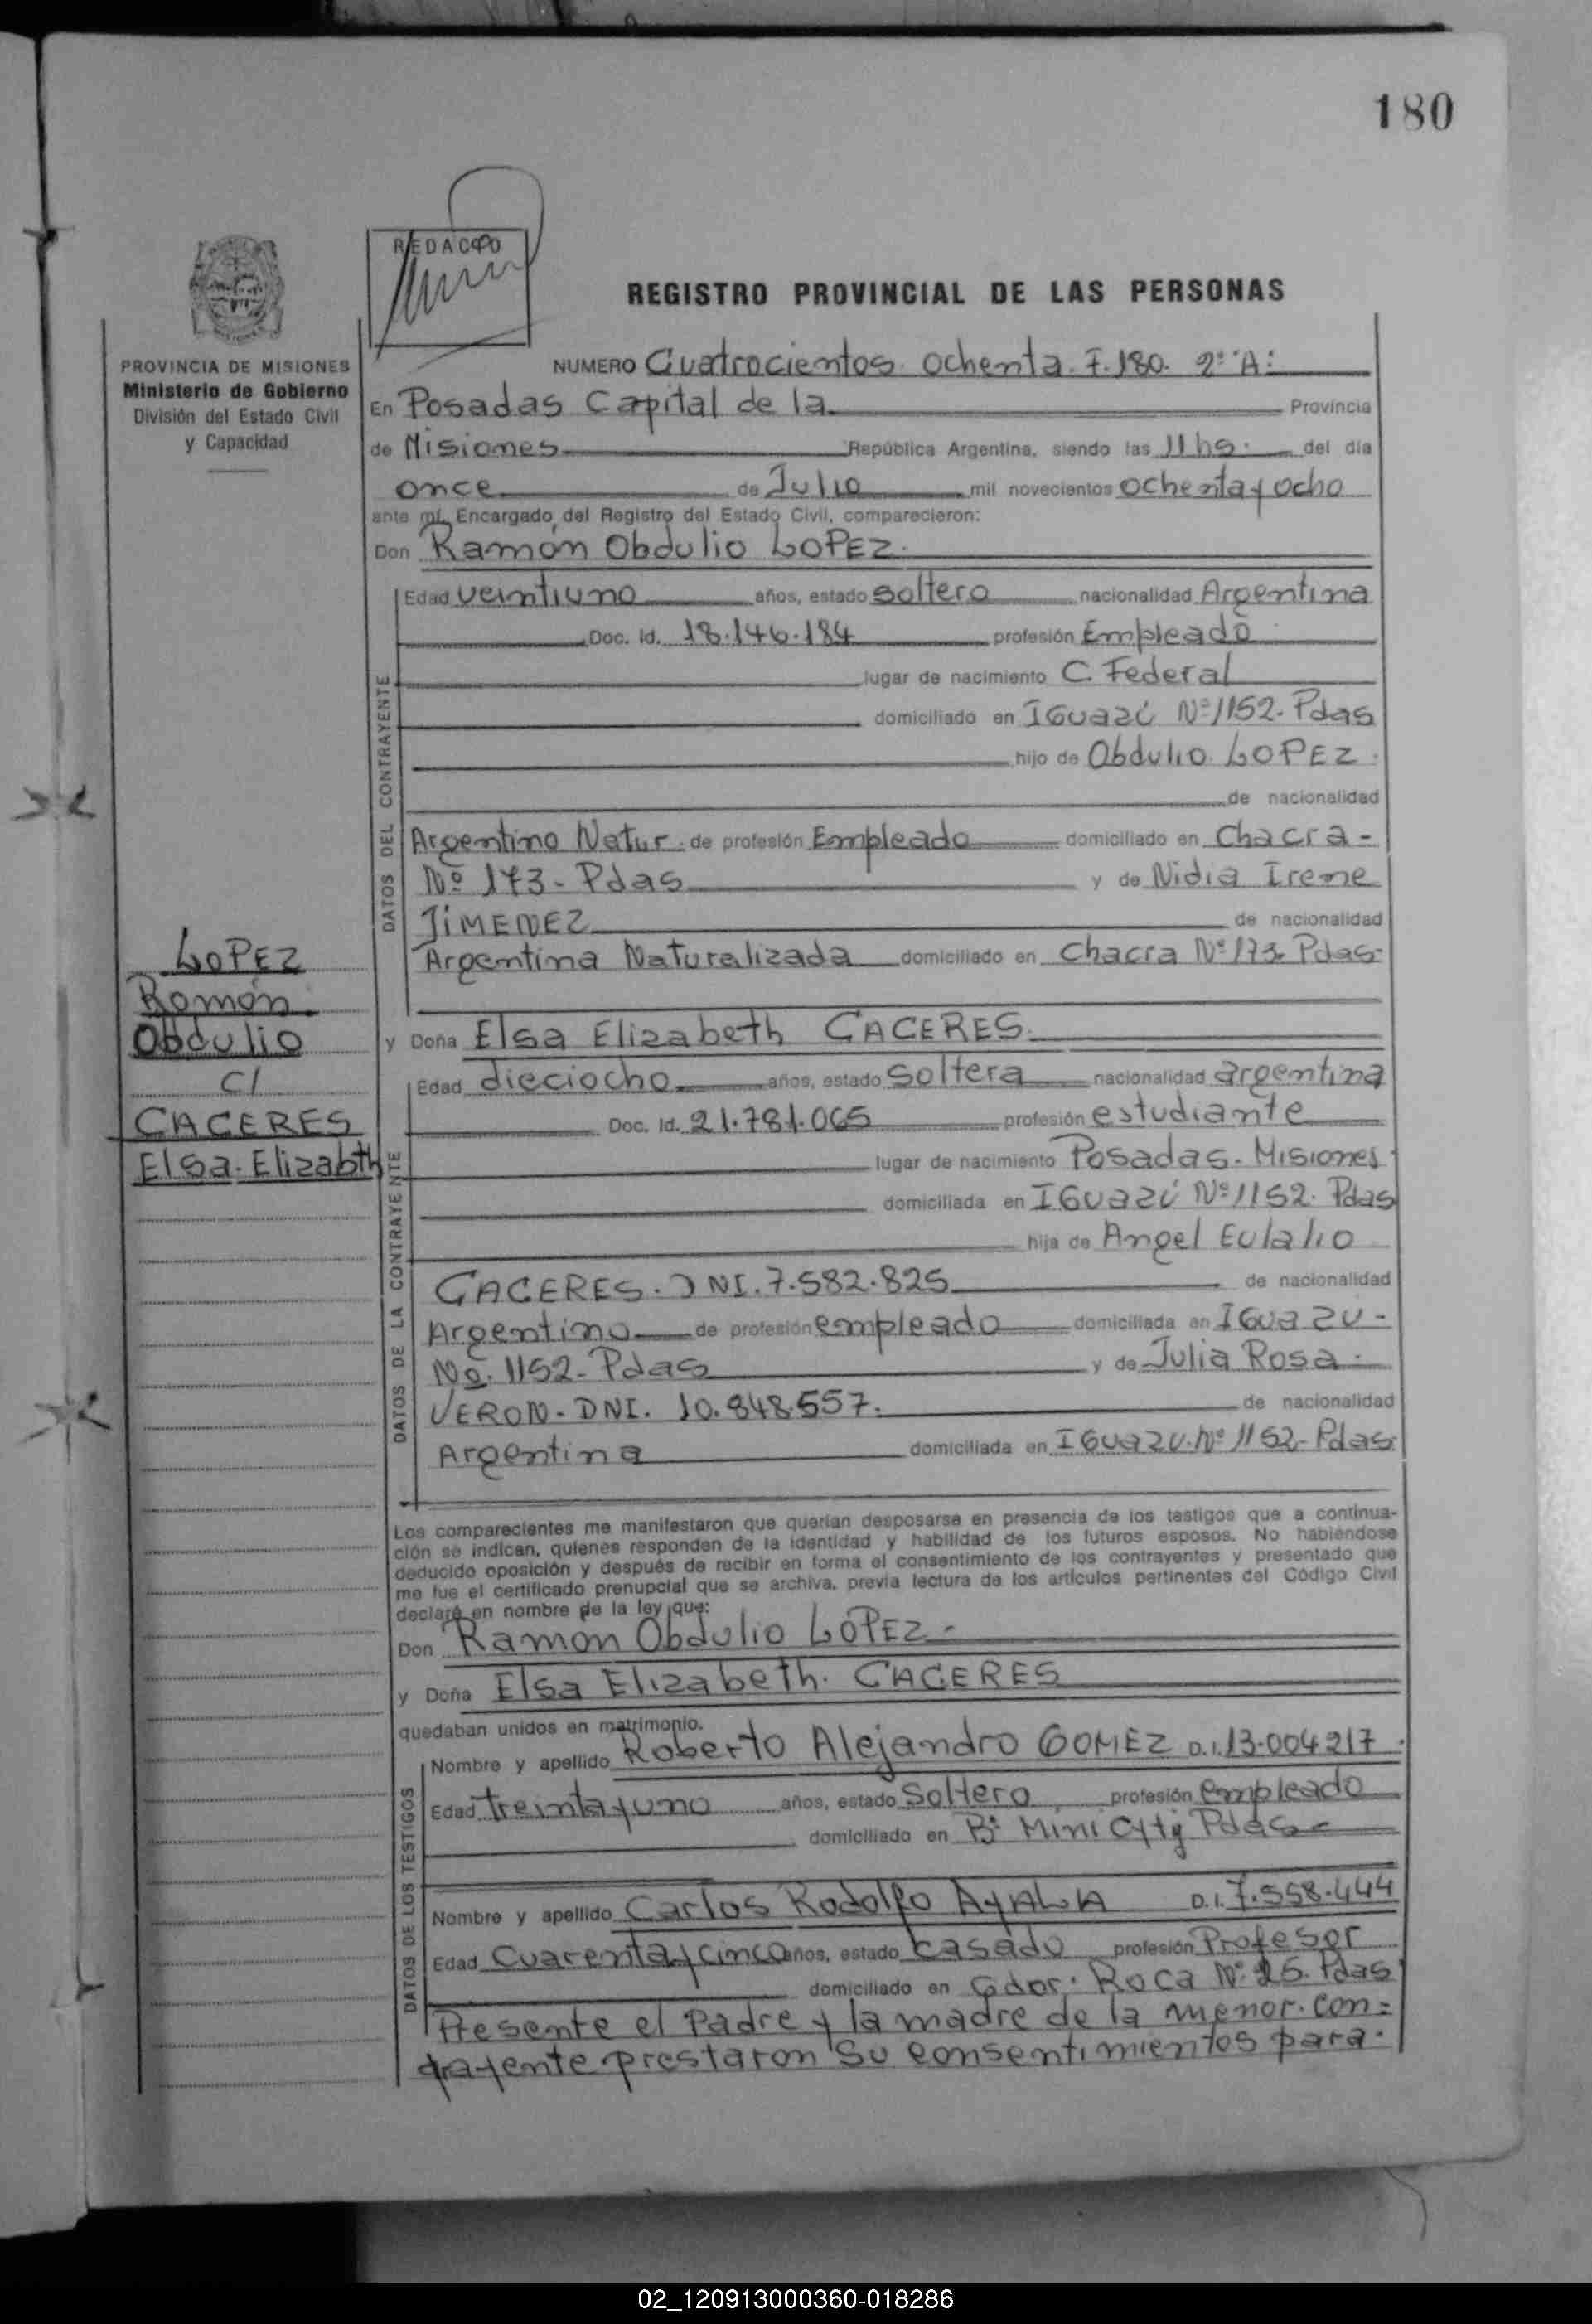 180
REDACTO
REGISTRO PROVINCIAL DE LAS PERSONAS
PROVINCIA DE MISIONES
Ministerio de Gobierno
División del Estado Civil
y Capacidad
NUMERO Cuatrocientos ochenta. F. 180. 2º "A":
En Posadas Capital de la Provincia
de Misiones República Argentina, siendo las 11 hs. del día
once de Julio mil novecientos ochenta y ocho
ante mí, Encargado del Registro del Estado Civil, comparecieron:
Don Ramón Obdulio LOPEZ.
DATOS DEL CONTRAYENTE
Edad veintiuno años, estado soltero nacionalidad Argentina
Doc. Id. 18.146.184 profesión Empleado
lugar de nacimiento C. Federal
domiciliado en IGuazú Nº 1152. Pdas
hijo de Obdulio LOPEZ.
de nacionalidad
Argentino Natur. de profesión Empleado domiciliado en Chacra -
Nº 173 - Pdas y de Nidia Irene
JIMENEZ de nacionalidad
Argentina Naturalizada domiciliado en Chacra Nº 173. Pdas.
LOPEZ
Ramón
Obdulio
C/
CACERES
Elsa. Elizabth
y Doña Elsa Elizabeth CACERES.
DATOS DE LA CONTRAYENTE
Edad dieciocho años, estado soltera nacionalidad argentina
Doc. Id. 21.781.065 profesión estudiante
lugar de nacimiento Posadas. Misiones
domiciliada en IGuazú Nº 1152. Pdas
hija de Angel Eulalio
CACERES. DNI. 7.582.825 de nacionalidad
Argentino de profesión empleado domiciliada en IGuazu -
No. 1152 - Pdas y de Julia Rosa.
VERON - DNI. 10.848.557. de nacionalidad
Argentina domiciliada en IGuazu. Nº 1152 - Pdas.
Los comparecientes me manifestaron que querían desposarse en presencia de los testigos que a continua-
ción se indican, quienes responden de la identidad y habilidad de los futuros esposos. No habiéndose
deducido oposición y después de recibir en forma el consentimiento de los contrayentes y presentado que
me fue el certificado prenupcial que se archiva, previa lectura de los artículos pertinentes del Código Civil
declaré en nombre de la ley que:
Don Ramon Obdulio LOPEZ -
y Doña Elsa Elizabeth. CACERES
quedaban unidos en matrimonio.
DATOS DE LOS TESTIGOS
Nombre y apellido Roberto Alejandro GOMEZ D.I. 13.004217.
Edad treinta y uno años, estado Soltero profesión empleado
domiciliado en Bº Mini Cyty Pdas -
Nombre y apellido Carlos Rodolfo AyALA D.I. 7.558.444
Edad Cuarenta y cinco años, estado casado profesión Profesor
domiciliado en Gdor. Roca Nº 25. Pdas
Presente el Padre y la madre de la menor. con=
trayente prestaron su consentimientos para.
02_120913000360-018286